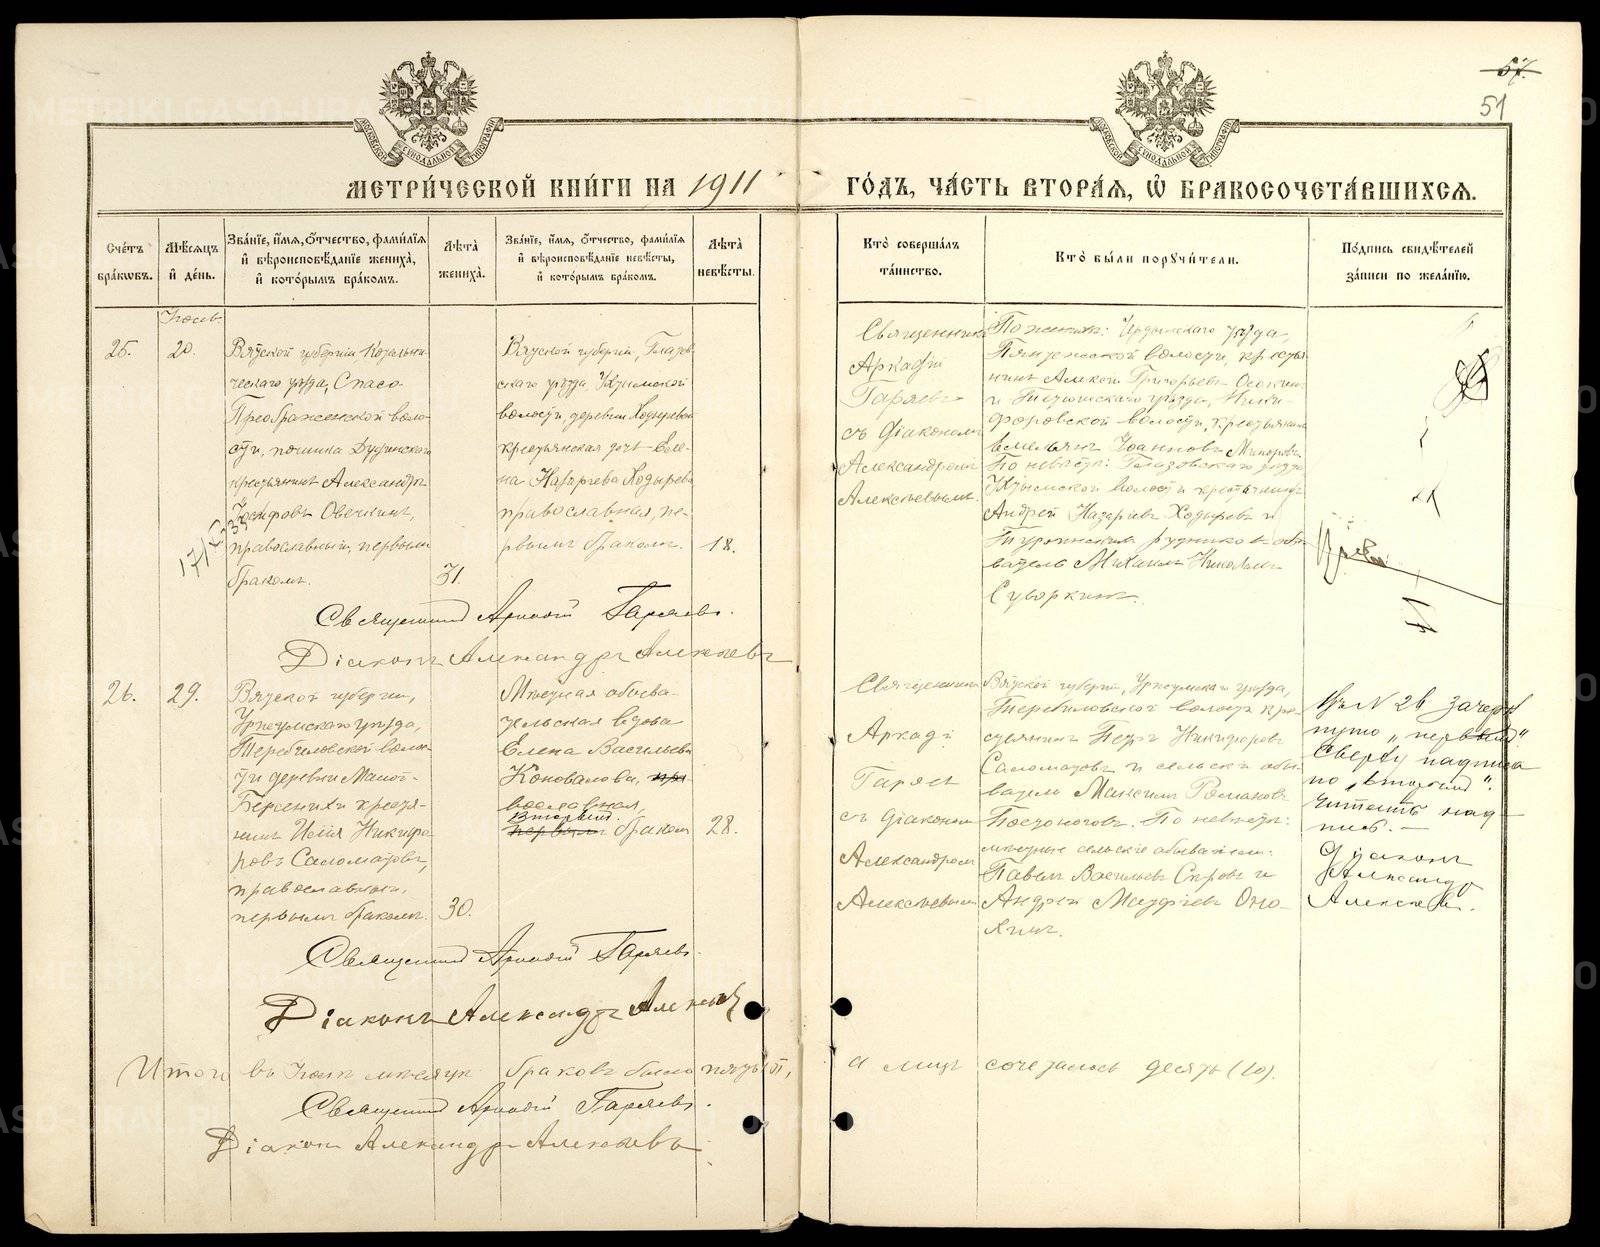 57.
51
МЕТРИ́ЧЕСКОЙ КНИ́ГИ НА 1911 ГО́ДЪ, ЧА́СТЬ ВТОРА́Я, Ѡ БРАКОСОЧЕТА́ВШИХСЯ.
Сче́тъ бра́ковъ.
Мѣ́сяцъ и҆ де́нь.
Зва́нїе, и҆́мя, ѻ҆́тчество, фами́лїя и҆ вѣроисповѣ́данїе жениха̀, и҆ кото́рымъ бра́комъ.
Лѣ́та жениха̀.
Зва́нїе, и҆́мя, ѻ҆́тчество, фами́лїя и҆ вѣроисповѣ́данїе невѣ́сты, и҆ кото́рымъ бра́комъ.
Лѣ́та невѣ́сты.
Кто̀ соверша́лъ та́инство.
Кто̀ бы́ли порꙋчи́тели.
По́дпись свидѣ́телей за́писи по жела́нїю.
25.
20.
Вятской губерніи Котельни-
ческаго уѣзда, Спасо-
Преображенской воло-
сти, починка
крестьянинъ Александръ
Іосифовъ Овечкинъ,
православный, первымъ
бракомъ.
31.
Вятской губерніи, Глазов-
скаго уѣзда
волости, деревни Ходыревой
крестьянская дочь Еле-
на Назарьева Ходырева
православная, пе-
рвымъ бракомъ.
18.
Священникъ
Аркадій
Гаряевъ
съ діакономъ
Александромъ
Алексѣевымъ.
По женихѣ: Чердынскаго уѣзда,
волости, кресть-
янинъ Алексѣй Григорьевъ
и уѣзда, Ники-
форовской волости, крестьянинъ
Іоанновъ
По невѣстѣ: Глазовскаго уѣзда
волости крестьянинъ
Андрей Назарьевъ Ходыревъ и
Турьинскихъ рудниковъ обы-
ватель Михаилъ Николаевъ
Суворкинъ.
Священникъ Аркадій Гаряевъ.
Діаконъ Александръ Алексѣевъ
26.
29.
Вятской губерніи,
Уржумскаго уѣзда,
Теребиловской воло-
сти деревни Малой-
крестья-
нинъ Илія Никифо-
ровъ Саломатовъ,
православный,
первымъ бракомъ.
30.
Мѣстная обыва-
тельская вдова
Елена Васильева
Коновалова, пра
вославная,
вторымъ
первымъ бракомъ
28.
Священникъ
Аркадій
Гаряевъ
съ діакономъ
Александромъ
Алексѣевымъ
Вятской губерніи, Уржумскаго уѣзда,
Теребиловской волости кре-
стьянинъ Петръ Никифоровъ
Саломатовъ и сельскій обы-
ватель Максимъ Романовъ
Постоноговъ. По невѣстѣ:
мѣстные сельскіе обыватели:
Павелъ Васильевъ и
Андрей
въ № 26 зачерк
нуто „первымъ“
Сверху надписа
но „вторымъ“.
Читать над-
пись. —
Діаконъ
Александръ
Алексѣевъ.
Священникъ Аркадій Гаряевъ.
Діаконъ Александръ Алексѣевъ
Итого въ мѣсяцѣ браковъ было пять (5), а лицъ сочеталось десять (10).
Священникъ Аркадій Гаряевъ.
Діаконъ Александръ Алексѣевъ.